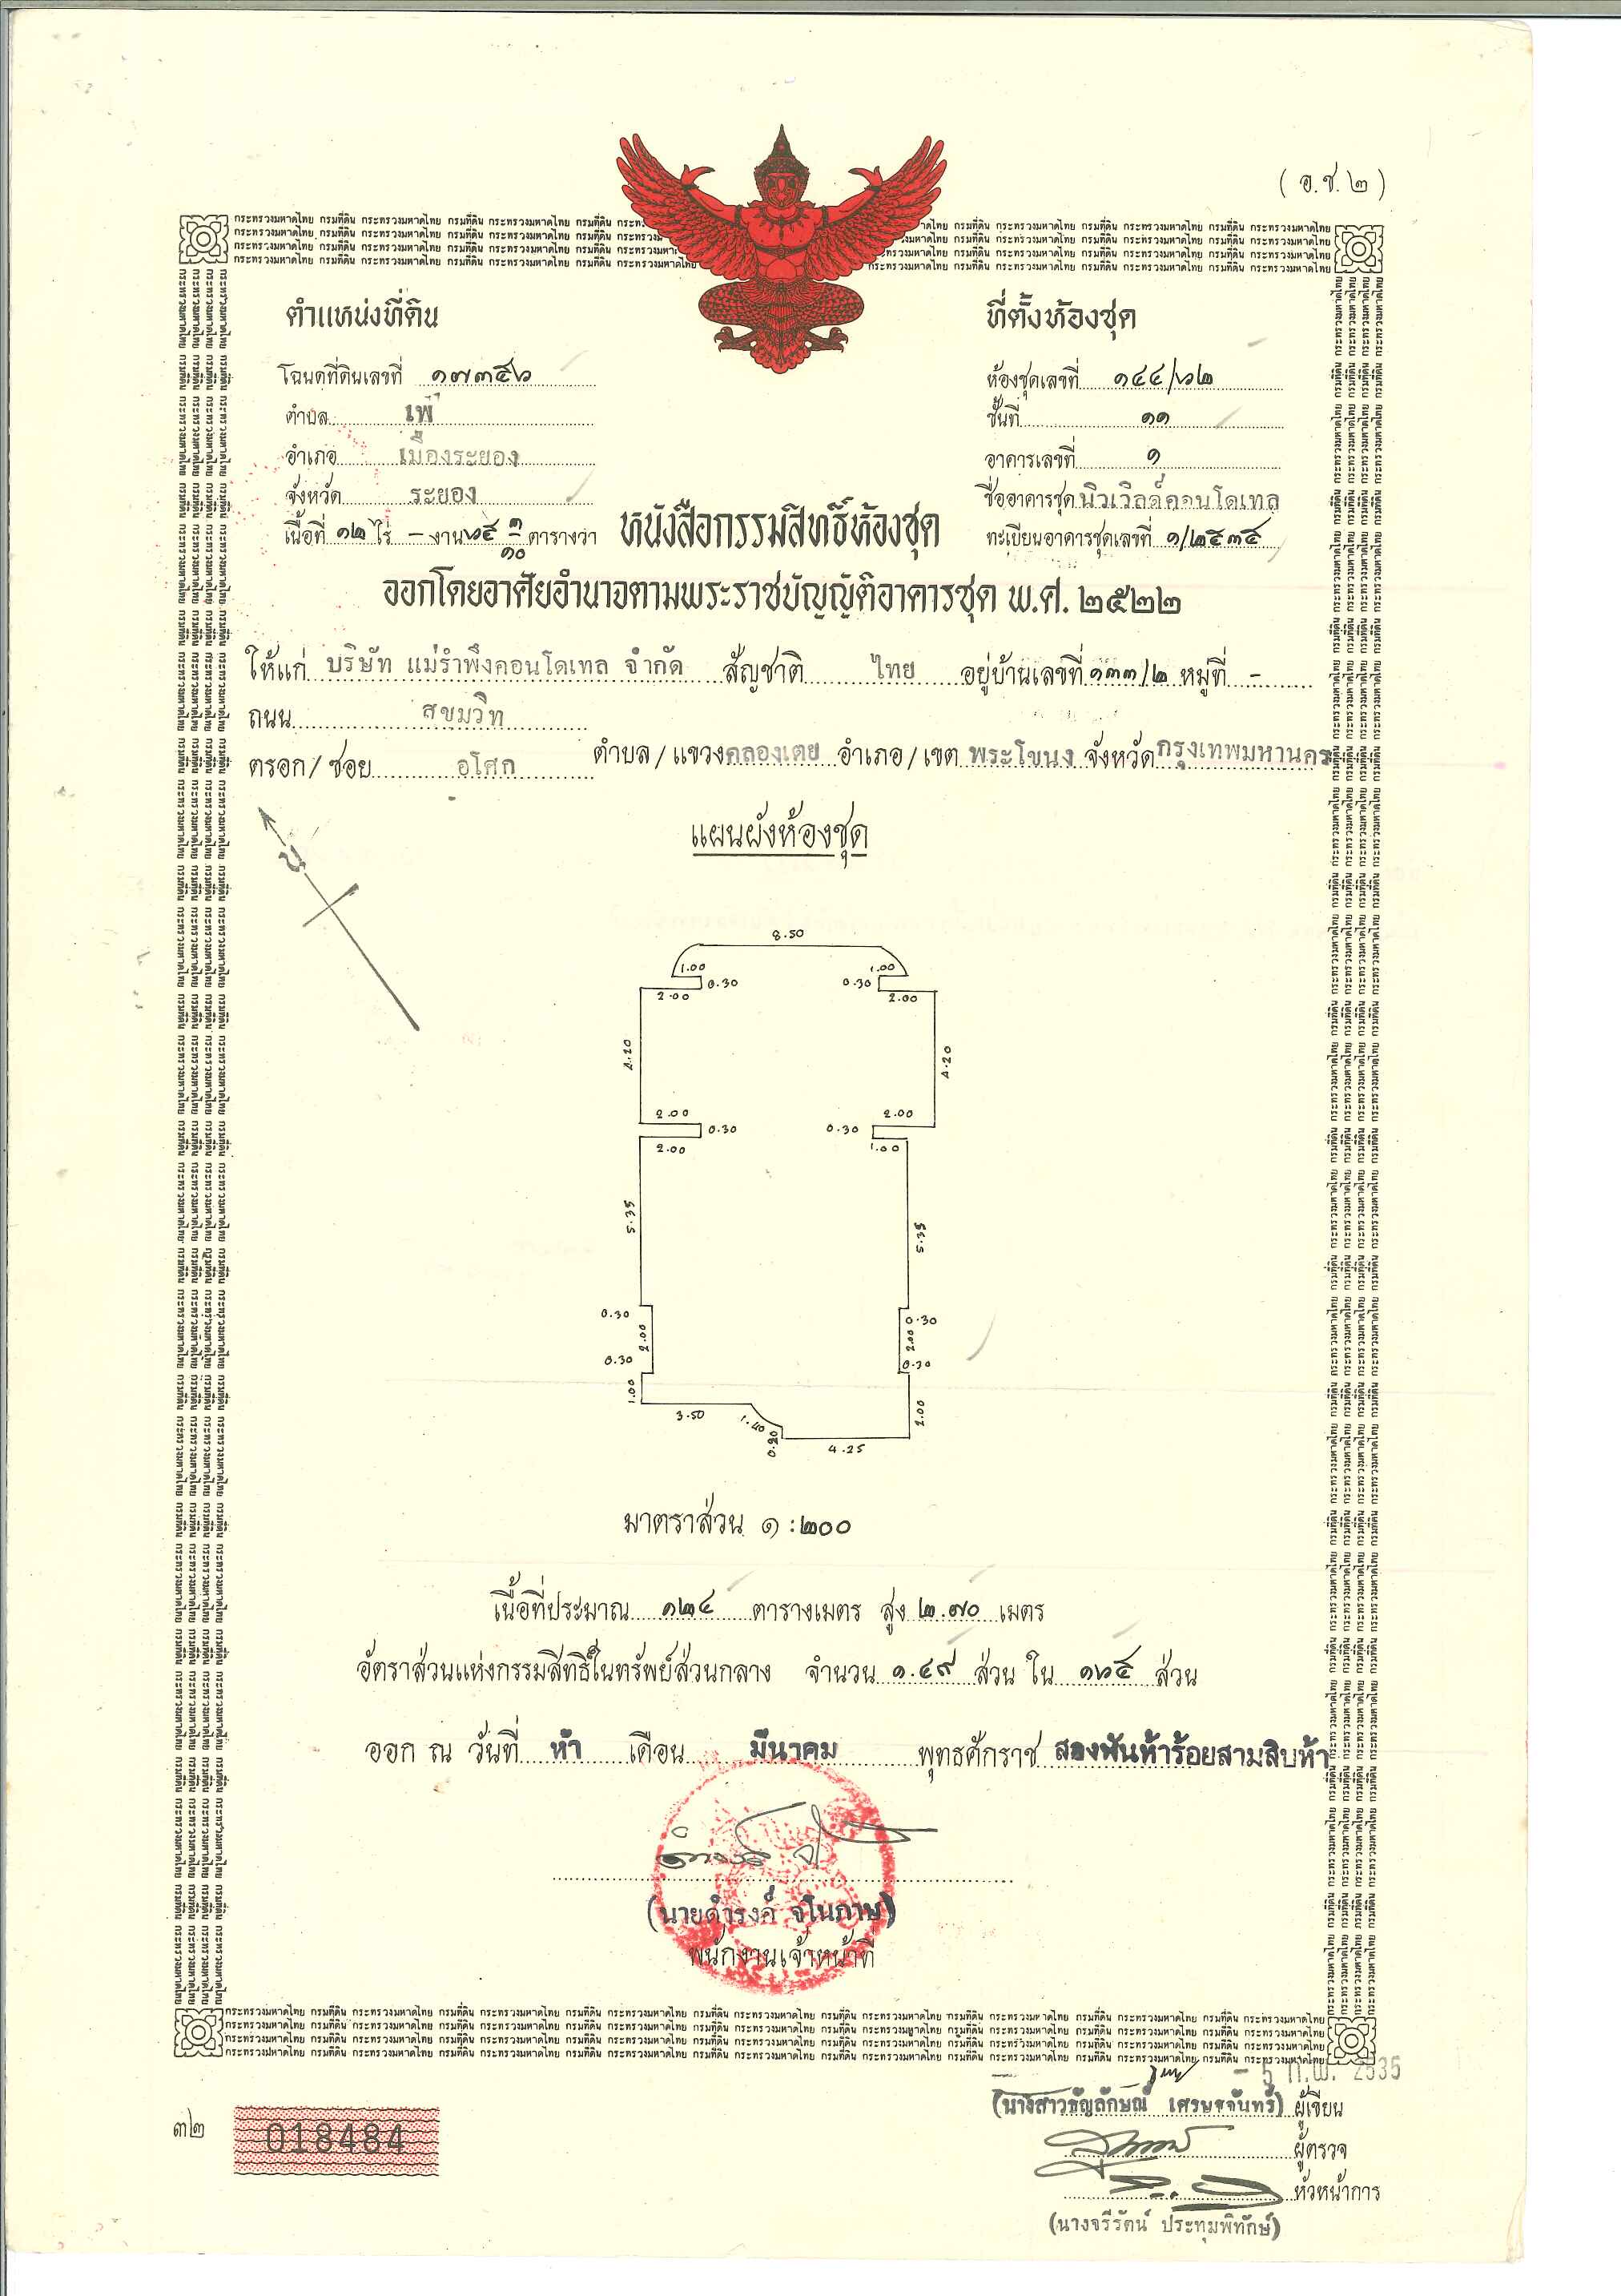 (อ.ช.๒)
ตำแหน่งที่ดิน
โฉนดที่ดินเลขที่ ๑๗๓๕๖
ตำบล เพ
อำเภอ เมืองระยอง
จังหวัด ระยอง
เนื้อที่ ๑๒ ไร่ - งาน ๖๕ ๓/๑๐ ตารางวา
ที่ตั้งห้องชุด
ห้องชุดเลขที่ ๑๔๔/๖๒
ชั้นที่ ๑๑
อาคารเลขที่ ๑
ชื่ออาคารชุด นิวเวิลด์คอนโดเทล
ทะเบียนอาคารชุดเลขที่ ๑/๒๕๓๕
หนังสือกรรมสิทธิ์ห้องชุด
ออกโดยอาศัยอำนาจตามพระราชบัญญัติอาคารชุด พ.ศ. ๒๕๒๒
ให้แก่ บริษัท แม่รำพึงคอนโดเทล จำกัด สัญชาติ ไทย อยู่บ้านเลขที่ ๑๓๓/๒ หมู่ที่ -
ถนน สุขุมวิท
ตรอก/ซอย อโศก ตำบล/แขวง คลองเตย อำเภอ/เขต พระโขนง จังหวัด กรุงเทพมหานคร
น
แผนผังห้องชุด
8.50
1.00 1.00
0.30 0.30
2.00 2.00
4.20 4.20
2.00 2.00
0.30 0.30
2.00 1.00
5.35 5.35
0.30 0.30
2.00 2.00
0.30 0.30
1.00 2.00
3.50 1.40 0.20 4.25
มาตราส่วน ๑:๒๐๐
เนื้อที่ประมาณ ๑๒๔ ตารางเมตร สูง ๒.๗๐ เมตร
อัตราส่วนแห่งกรรมสิทธิ์ในทรัพย์ส่วนกลาง จำนวน ๑.๔๙ ส่วน ใน ๑๖๕ ส่วน
ออก ณ วันที่ ห้า เดือน มีนาคม พุทธศักราช สองพันห้าร้อยสามสิบห้า
(นายดำรงค์ จูโนภาษ)
พนักงานเจ้าหน้าที่
- 5 ก.พ. 2535
(นางสาวธัญลักษณ์ เศรษฐจันทร์) ผู้เขียน
ผู้ตรวจ
หัวหน้าการ
(นางจรีรัตน์ ประทุมพิทักษ์)
๓๒
018484
กระทรวงมหาดไทย กรมที่ดิน